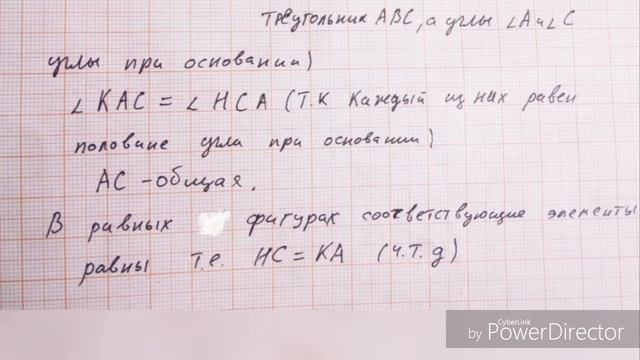 треугольник ABC, а углы ∠A и ∠C
углы при основании)
∠ KAC = ∠ HCA (т.к каждый из них равен
половине угла при основании)
AC - общая.
В равных фигурах соответствующие элементы
равны т.е. HC = KA (ч.т.д)
CyberLink
by PowerDirector